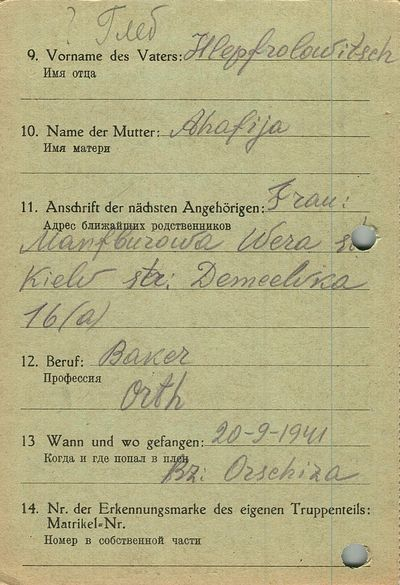 ? Глеб
9. Vorname des Vaters: Hlepfrolowitsch
Имя отца
10. Name der Mutter: Ahafija
Имя матери
11. Anschrift der nächsten Angehörigen: Frau:
Адрес ближайших родственников
Wera st
Kiew str: Demeewka
16(a)
12. Beruf: Baker
Профессия
Orth
13 Wann und wo gefangen: 20-9-1941
Когда и где попал в плен
Bz: Orschiza
14. Nr. der Erkennungsmarke des eigenen Truppenteils:
Matrikel-Nr.
Номер в собственной части